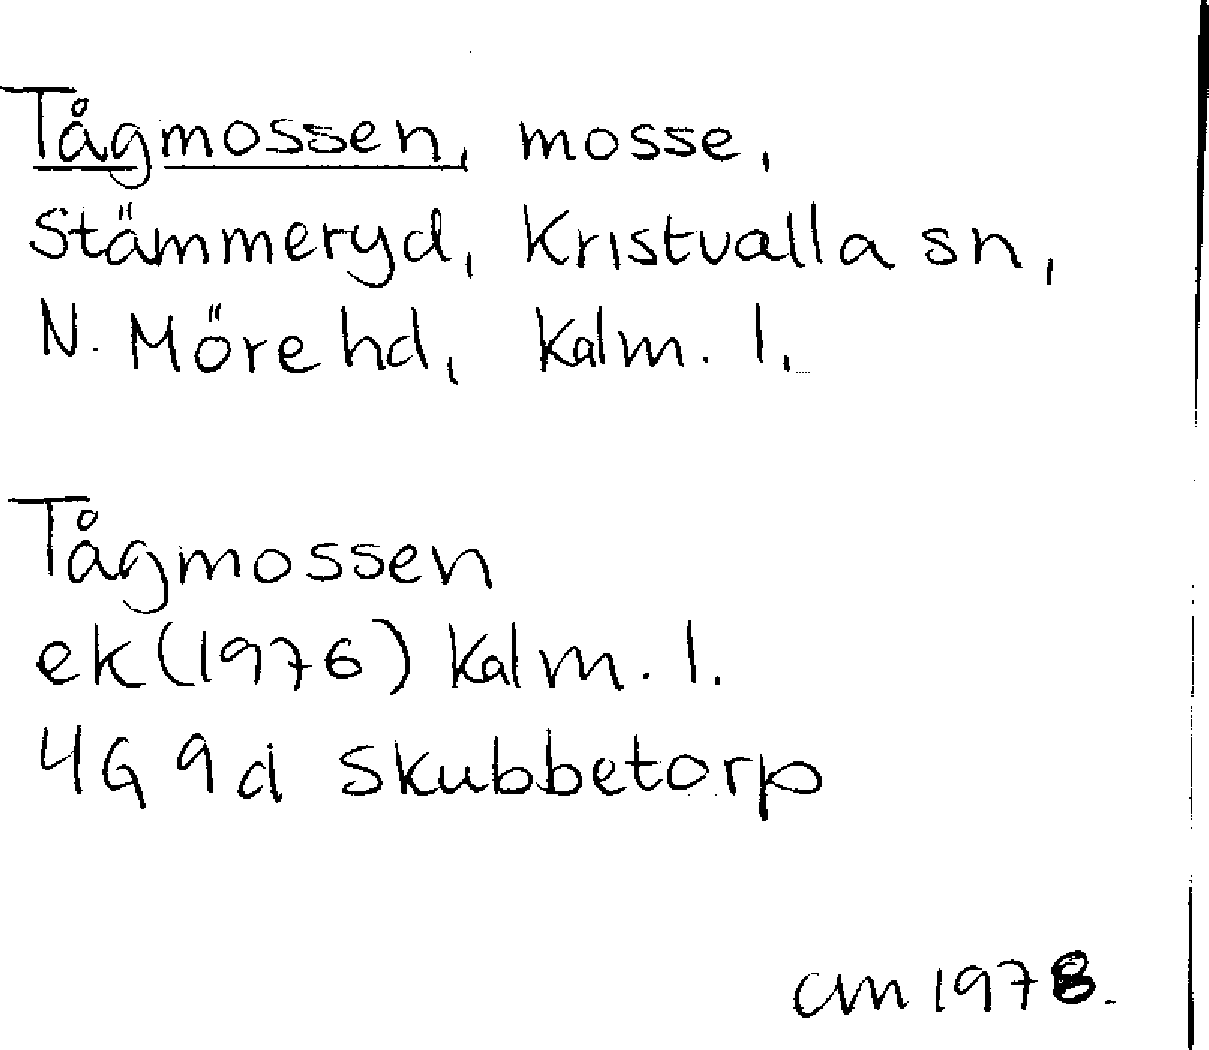 Tågmossen, mosse,
Stämmeryd, Kristvalla sn,
N. Möre hd, Kalm. l.
Tågmossen
ek (1976) Kalm. l.
4G 9d Skubbetorp
CM 1978.